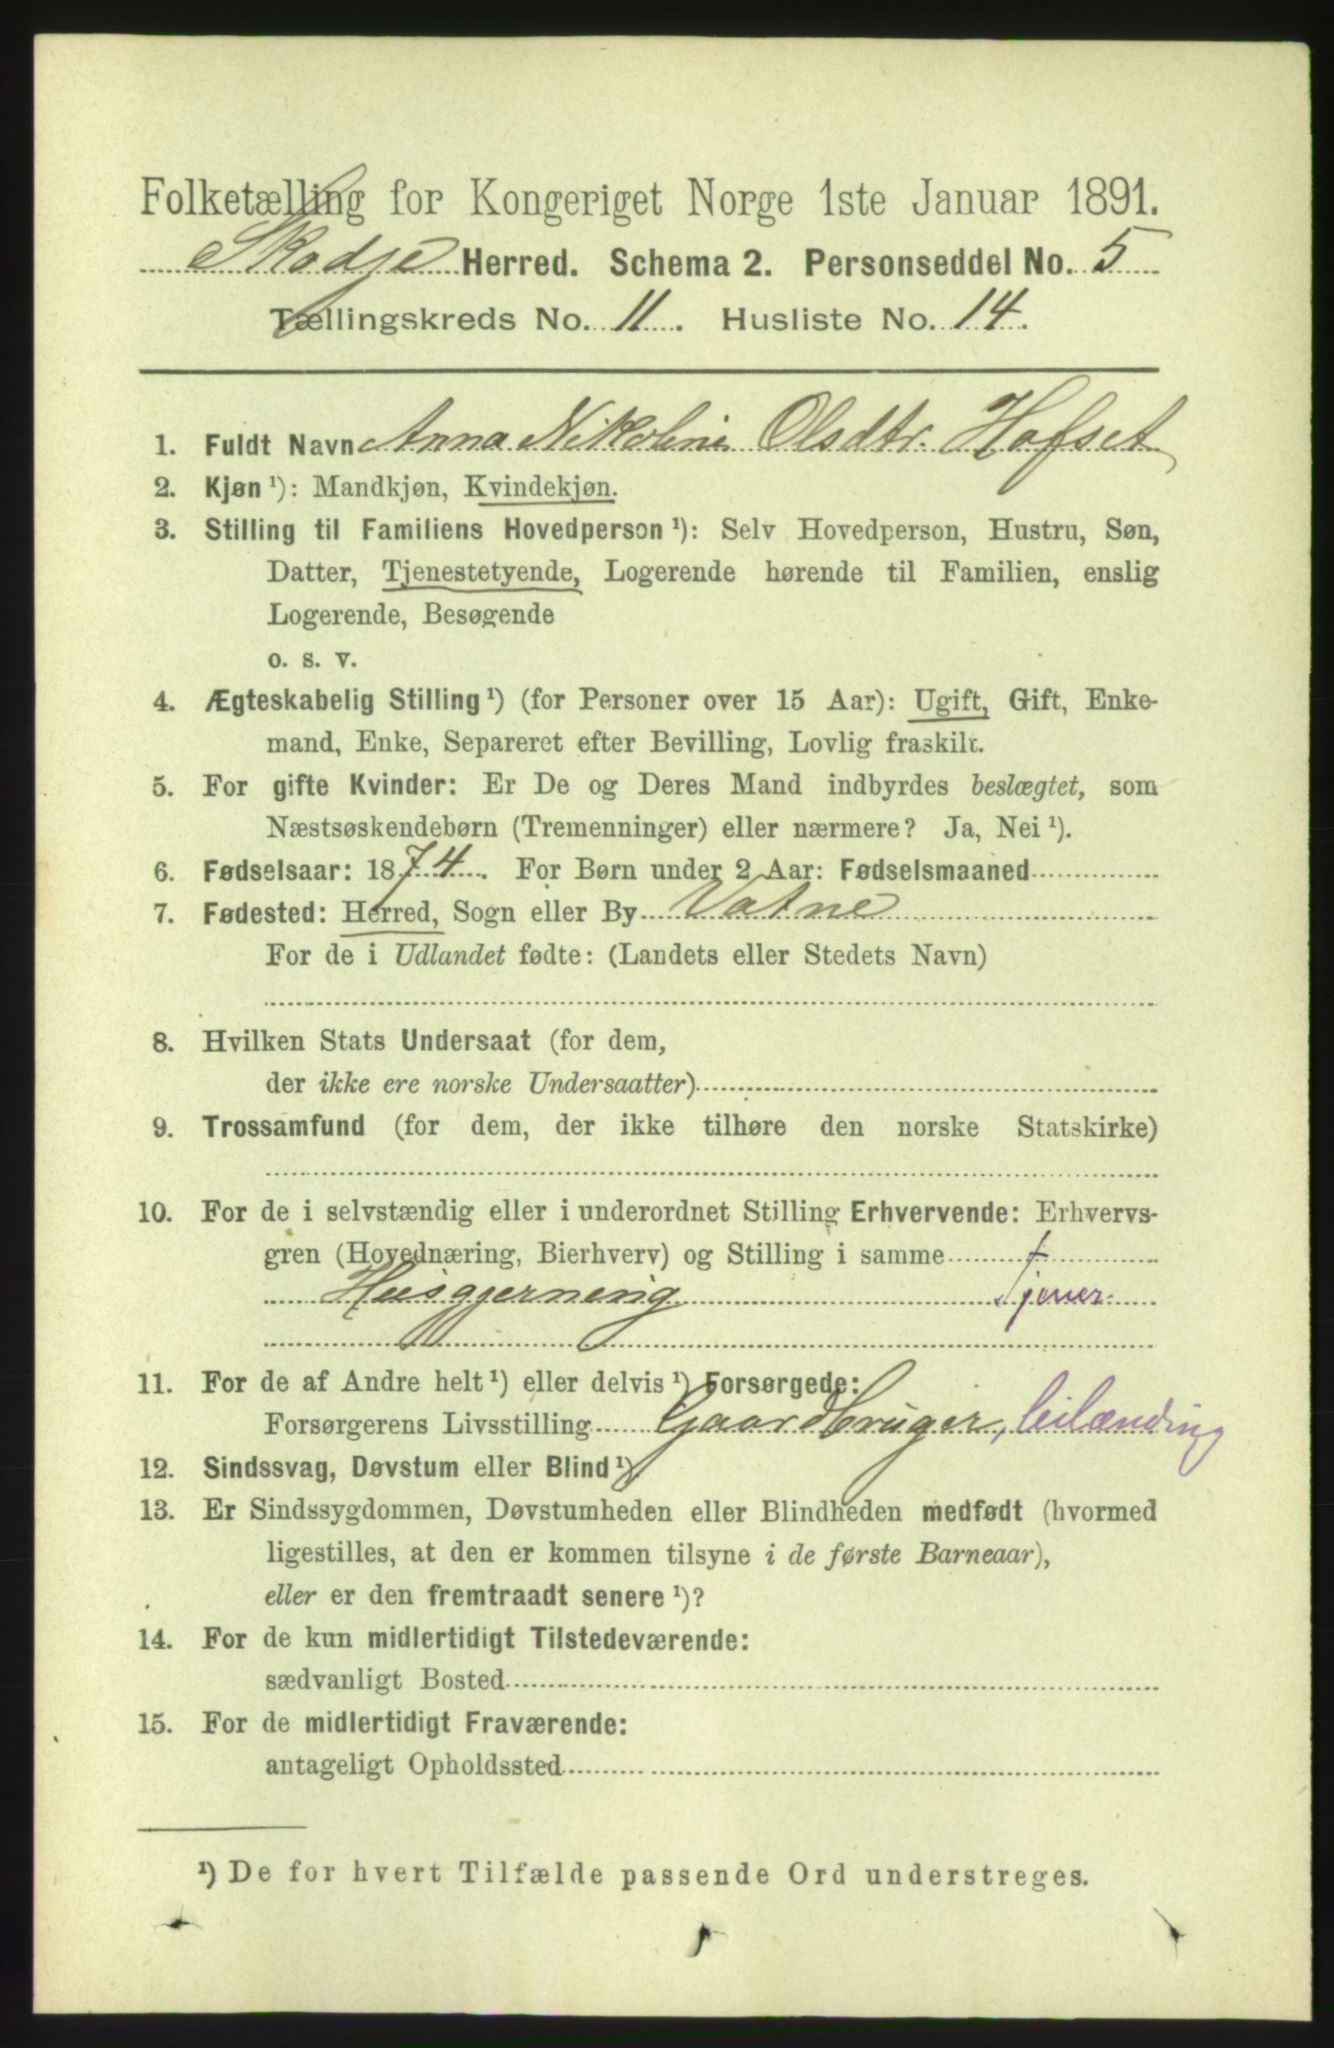 Folketælling for Kongeriget Norge 1ste Januar 1891.
Skodje Herred. Schema 2. Personseddel No. 5
Tællingskreds No. 11. Husliste No. 14.
1. Fuldt Navn Anna Nikoline Olsdtr. Hofset
2. Kjøn ¹): Mandkjøn, Kvindekjøn.
3. Stilling til Familiens Hovedperson ¹): Selv Hovedperson, Hustru, Søn,
Datter, Tjenestetyende, Logerende hørende til Familien, enslig
Logerende, Besøgende
o. s. v.
4. Ægteskabelig Stilling ¹) (for Personer over 15 Aar): Ugift, Gift, Enke-
mand, Enke, Separeret efter Bevilling, Lovlig fraskilt.
5. For gifte Kvinder: Er De og Deres Mand indbyrdes beslægtet, som
Næstsøskendebørn (Tremenninger) eller nærmere? Ja, Nei ¹).
6. Fødselsaar: 1874. For Børn under 2 Aar: Fødselsmaaned
7. Fødested: Herred, Sogn eller By Vatne
For de i Udlandet fødte: (Landets eller Stedets Navn)
8. Hvilken Stats Undersaat (for dem,
der ikke ere norske Undersaatter)
9. Trossamfund (for dem, der ikke tilhøre den norske Statskirke)
10. For de i selvstændig eller i underordnet Stilling Erhvervende: Erhvervs-
gren (Hovednæring, Bierhverv) og Stilling i samme
Huusgjerning Tjener.
11. For de af Andre helt ¹) eller delvis ¹) Forsørgede:
Forsørgerens Livsstilling Gaardbruger, leilænding
12. Sindssvag, Døvstum eller Blind ¹).
13. Er Sindssygdommen, Døvstumheden eller Blindheden medfødt (hvormed
ligestilles, at den er kommen tilsyne i de første Barneaar),
eller er den fremtraadt senere ¹)?
14. For de kun midlertidigt Tilstedeværende:
sædvanligt Bosted
15. For de midlertidigt Fraværende:
antageligt Opholdssted
¹) De for hvert Tilfælde passende Ord understreges.